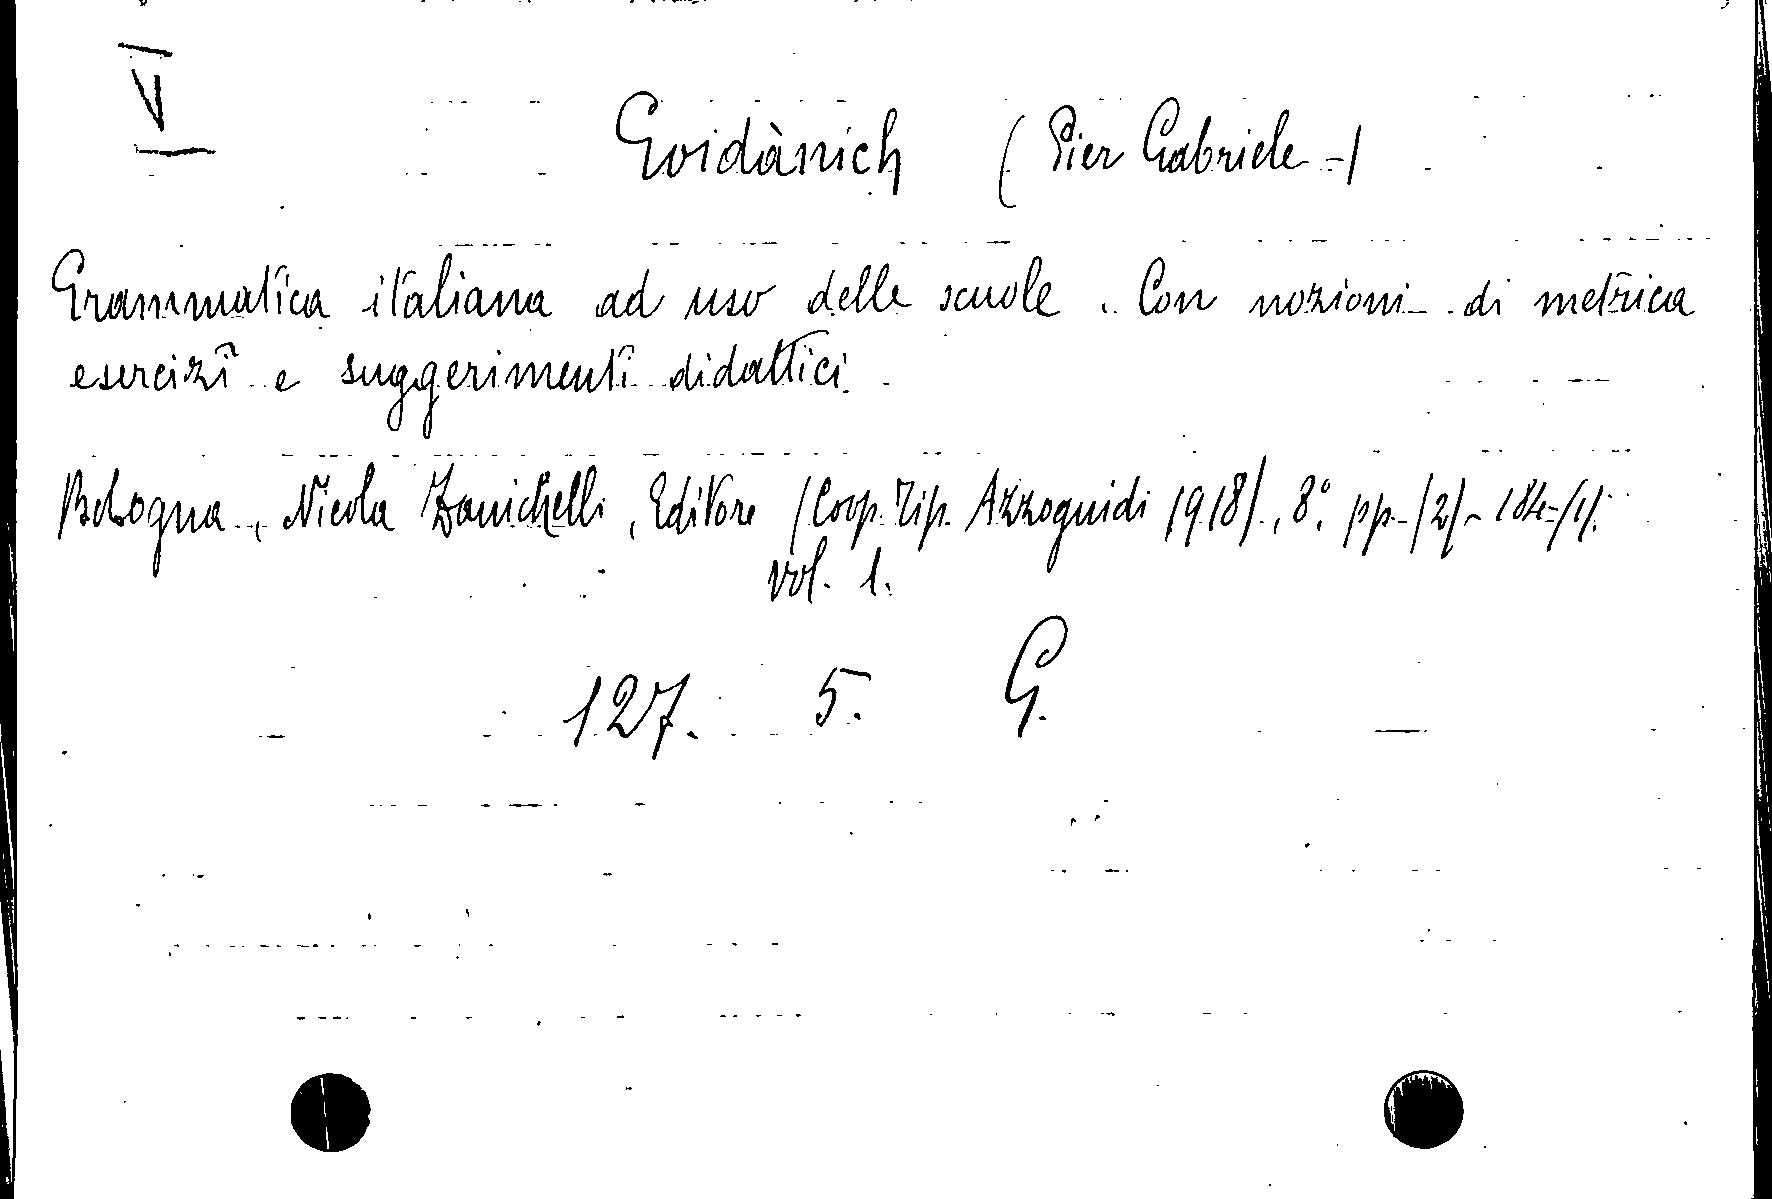 V
Goidànich (Pier Gabriele -)
Grammatica italiana ad uso delle scuole. Con nozioni di metrica
esercizî e suggerimenti didattici.
Bologna, Nicola Zanichelli, Editore (Coop. Tip. Azzoguidi 1918), 8° pp. (2)-184-(1).
vol. 1.
127. 5. G.